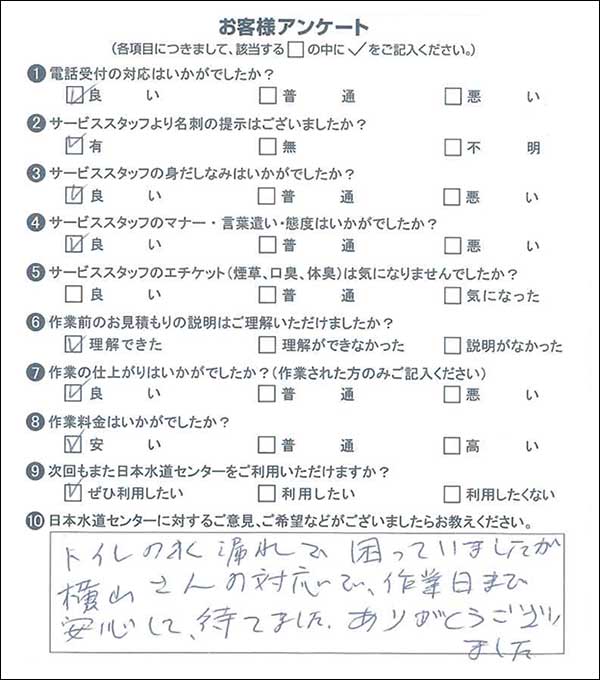 お客様アンケート
(各項目につきまして、該当する□の中に✓をご記入ください。)
❶ 電話受付の対応はいかがでしたか?
☑良い □普通 □悪い
❷ サービススタッフより名刺の提示はございましたか?
☑有 □無 □不明
❸ サービススタッフの身だしなみはいかがでしたか?
☑良い □普通 □悪い
❹ サービススタッフのマナー・言葉遣い・態度はいかがでしたか?
☑良い □普通 □悪い
❺ サービススタッフのエチケット(煙草、口臭、体臭)は気になりませんでしたか?
□良い □普通 □気になった
❻ 作業前のお見積もりの説明はご理解いただけましたか?
☑理解できた □理解ができなかった □説明がなかった
❼ 作業の仕上がりはいかがでしたか?(作業された方のみご記入ください)
☑良い □普通 □悪い
❽ 作業料金はいかがでしたか?
☑安い □普通 □高い
❾ 次回もまた日本水道センターをご利用いただけますか?
☑ぜひ利用したい □利用したい □利用したくない
❿ 日本水道センターに対するご意見、ご希望などがございましたらお教えください。
トイレの水漏れで困っていましたが
横山さんの対応で、作業日まで
安心して、待てました。ありがとうござい
ました